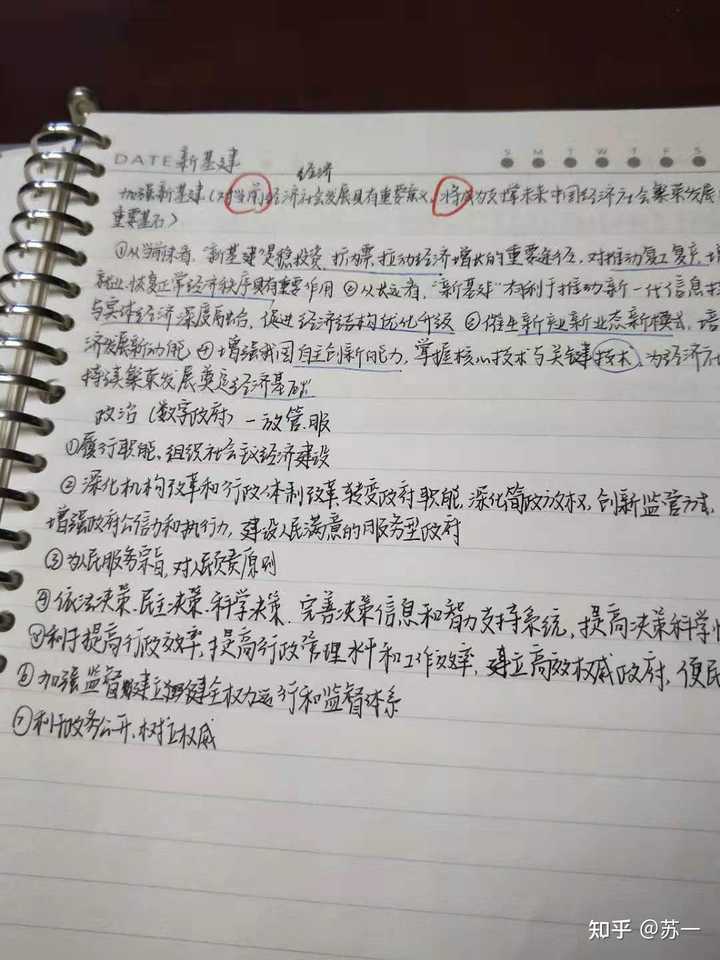 DATE 新基建
S M T W T F S
经济
加强新基建（对当前经济社会发展具有重要意义，将成为支撑未来中国经济社会繁荣发展
重要基石）
①从当前来看，"新基建"是稳投资、扩内需、拉动经济增长的重要途径，对推动复工复产、增
就业、恢复正常经济秩序具有重要作用 ②从长远看，"新基建"有利于推动新一代信息技
与实体经济深度融合，促进经济结构优化升级 ③催生新产业新业态新模式，培
济发展新动能 ④增强我国自主创新能力，掌握核心技术与关键技术，为经济社
持续繁荣发展奠定经济基础
政治（数字政府）—放管服
①履行职能、组织社会主义经济建设
②深化机构改革和行政体制改革，转变政府职能，深化简政放权，创新监管方式，
增强政府公信力和执行力，建设人民满意的服务型政府
③为人民服务宗旨，对人民负责原则
④依法决策、民主决策、科学决策，完善决策信息和智力支持系统，提高决策科学性
⑤利于提高行政效率，提高行政管理水平和工作效率，建立高效权威政府，便民
⑥加强监督，建立健全权力运行和监督体系
⑦利于政务公开，树立权威
知乎 @苏一